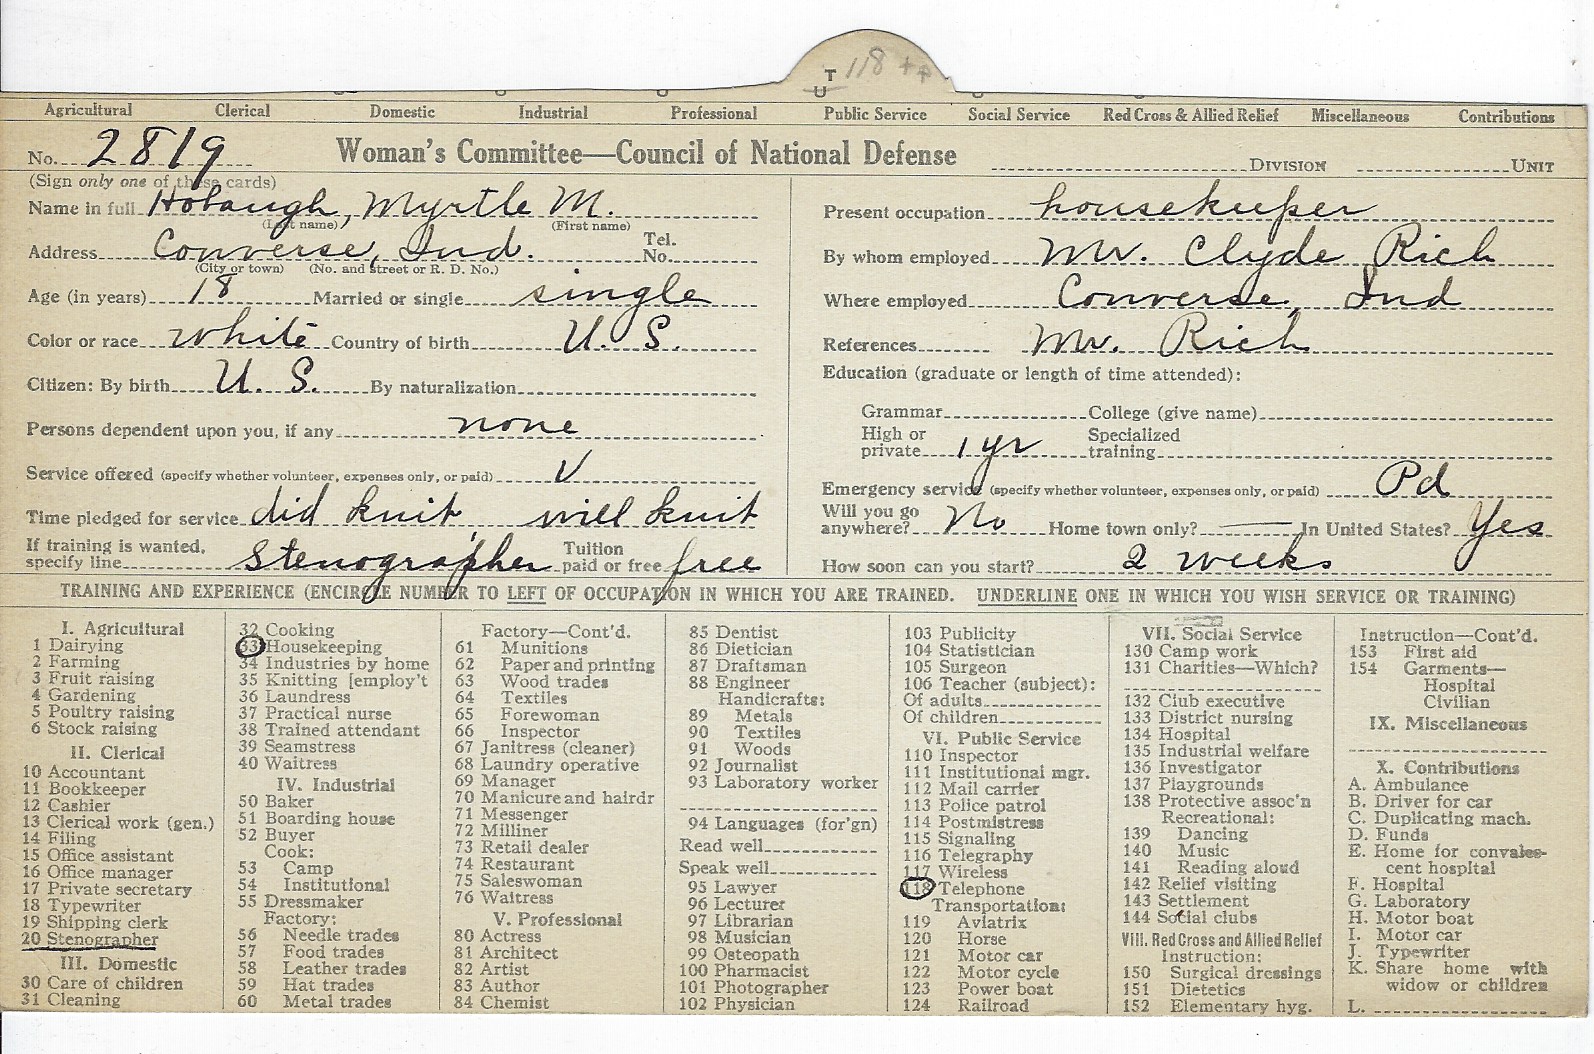 T 118 ++
U
Agricultural Clerical Domestic Industrial Professional Public Service Social Service Red Cross & Allied Relief Miscellaneous Contributions
No. 2819 Woman's Committee—Council of National Defense DIVISION UNIT
(Sign only one of these cards)
Name in full Hobaugh, Myrtle M.
(Last name) (First name)
Address Converse, Ind. Tel. No.
(City or town) (No. and street or R. D. No.)
Age (in years) 18 Married or single single
Color or race white Country of birth U. S.
Citizen: By birth U. S. By naturalization
Persons dependent upon you, if any none
Service offered (specify whether volunteer, expenses only, or paid) V
Time pledged for service did knit will knit
If training is wanted, specify line stenographer Tuition paid or free free
Present occupation housekeeper
By whom employed Mr. Clyde Rich
Where employed Converse, Ind
References Mr. Rich
Education (graduate or length of time attended):
Grammar College (give name)
High or private 1 yr Specialized training
Emergency service (specify whether volunteer, expenses only, or paid) Pd
Will you go anywhere? No Home town only? — In United States? Yes
How soon can you start? 2 weeks
TRAINING AND EXPERIENCE (ENCIRCLE NUMBER TO LEFT OF OCCUPATION IN WHICH YOU ARE TRAINED. UNDERLINE ONE IN WHICH YOU WISH SERVICE OR TRAINING)
I. Agricultural
1 Dairying
2 Farming
3 Fruit raising
4 Gardening
5 Poultry raising
6 Stock raising
II. Clerical
10 Accountant
11 Bookkeeper
12 Cashier
13 Clerical work (gen.)
14 Filing
15 Office assistant
16 Office manager
17 Private secretary
18 Typewriter
19 Shipping clerk
20 Stenographer
III. Domestic
30 Care of children
31 Cleaning
32 Cooking
33 Housekeeping
34 Industries by home
35 Knitting [employ't
36 Laundress
37 Practical nurse
38 Trained attendant
39 Seamstress
40 Waitress
IV. Industrial
50 Baker
51 Boarding house
52 Buyer
Cook:
53 Camp
54 Institutional
55 Dressmaker
Factory:
56 Needle trades
57 Food trades
58 Leather trades
59 Hat trades
60 Metal trades
Factory—Cont'd.
61 Munitions
62 Paper and printing
63 Wood trades
64 Textiles
65 Forewoman
66 Inspector
67 Janitress (cleaner)
68 Laundry operative
69 Manager
70 Manicure and hairdr
71 Messenger
72 Milliner
73 Retail dealer
74 Restaurant
75 Saleswoman
76 Waitress
V. Professional
80 Actress
81 Architect
82 Artist
83 Author
84 Chemist
85 Dentist
86 Dietician
87 Draftsman
88 Engineer
Handicrafts:
89 Metals
90 Textiles
91 Woods
92 Journalist
93 Laboratory worker
94 Languages (for'gn)
Read well
Speak well
95 Lawyer
96 Lecturer
97 Librarian
98 Musician
99 Osteopath
100 Pharmacist
101 Photographer
102 Physician
103 Publicity
104 Statistician
105 Surgeon
106 Teacher (subject):
Of adults
Of children
VI. Public Service
110 Inspector
111 Institutional mgr.
112 Mail carrier
113 Police patrol
114 Postmistress
115 Signaling
116 Telegraphy
117 Wireless
118 Telephone
Transportation:
119 Aviatrix
120 Horse
121 Motor car
122 Motor cycle
123 Power boat
124 Railroad
VII. Social Service
130 Camp work
131 Charities—Which?
132 Club executive
133 District nursing
134 Hospital
135 Industrial welfare
136 Investigator
137 Playgrounds
138 Protective assoc'n
Recreational:
139 Dancing
140 Music
141 Reading aloud
142 Relief visiting
143 Settlement
144 Social clubs
VIII. Red Cross and Allied Relief
Instruction:
150 Surgical dressings
151 Dietetics
152 Elementary hyg.
Instruction—Cont'd.
153 First aid
154 Garments—
Hospital
Civilian
IX. Miscellaneous
X. Contributions
A. Ambulance
B. Driver for car
C. Duplicating mach.
D. Funds
E. Home for convales-
cent hospital
F. Hospital
G. Laboratory
H. Motor boat
I. Motor car
J. Typewriter
K. Share home with
widow or children
L.